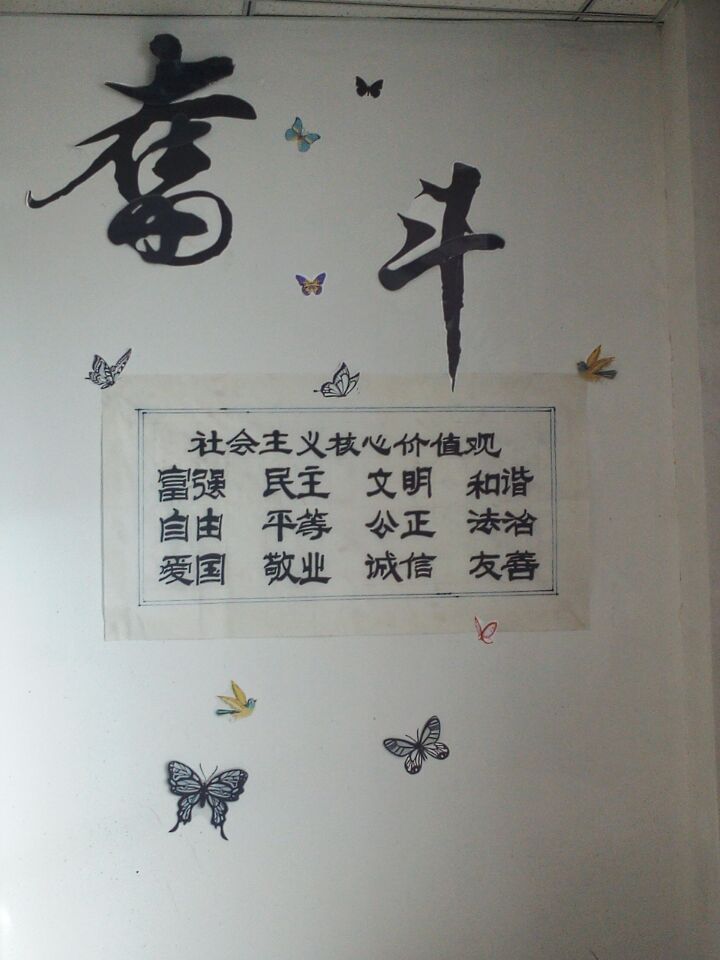 奋斗
社会主义核心价值观
富强 民主 文明 和谐
自由 平等 公正 法治
爱国 敬业 诚信 友善